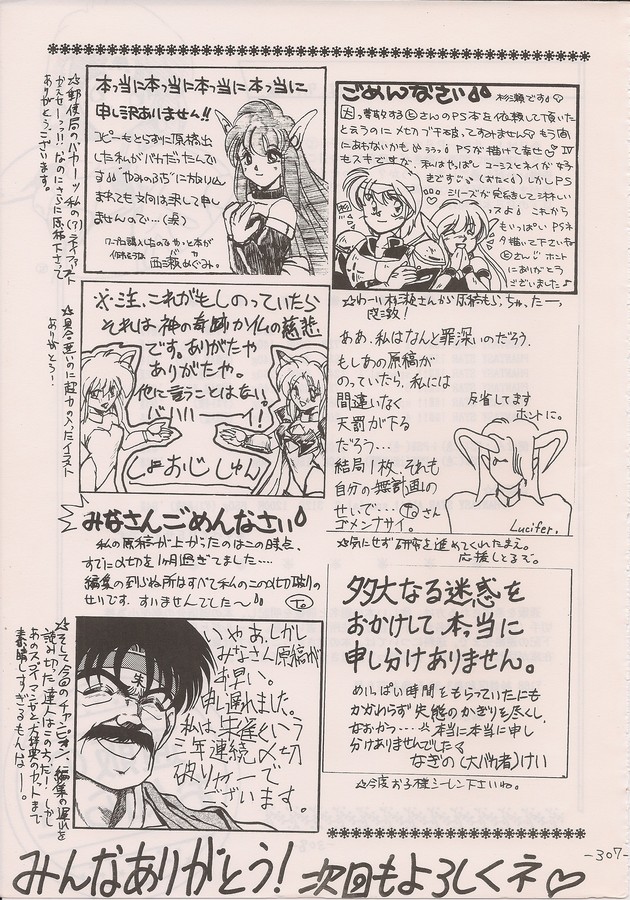 本っ当に本っ当に本っ当に本っ当に
申し訳ありません!!
コピーもとらずに原稿出
した私がバカだったんで
まれても文句は決して申し
ませんので…(涙)
西瀬めぐみ.
☆郵便局のバカーッ 私の
ありがとうございます。
ごめんなさい
杉瀬です♡
さんのPS本を依頼して頂いた
にあわないかも
PSが描けて幸せ♡ Ⅳ
もスキですが、私はやっぱし
シリーズが完結して淋しい
っスよ これから
もいっぱい PSネ
タ描いて下さいね
さん ホント
にありがとう
ございました
※注、これがもしのっていたら
それは神の奇跡か仏の慈悲
です。ありがたや
ありがたや。
他に言うことはない。
しょおじ しゅん
☆具合悪いのに超力の入ったイラスト
ありがとう!
☆わーい 杉瀬さんから原稿もらっちゃったーっ
感激!
ああ、私はなんと罪深いのだろう.
もしあの原稿が
のっていたら、私には
間違いなく
天罰が下る
だろう…
結局1枚、それも
自分の無計画の
せいで…
さん
ゴメンナサイ。
反省してます
ホントに。
Lucifer.
☆気にせず研究を進めてくれたまえ。
応援しとるぞ。
みなさんごめんなさい
私の原稿が上がったのはこの時点、
すでに〆切を1ヶ月過ぎてました…
編集の到らぬ所はすべて私のこの〆切破りの
せいです. すいませんでした〜
いやあ、しかし
みなさん原稿が
お早い。
申し遅れました。
私は朱雀という
三年連続〆切
破りヤローで
ございます。
朱
☆そして今回のチャンピオン、編集の遅れを
読み切った達人はこの方だ! しかし
多大なる迷惑を
おかけして、本っ当に
申し分けありません。
めいっぱい時間をもらっていたにも
かかわらず失態のかぎりを尽くし、
なおかつ…本当に本当に申し
分けありませんでした
なぎの(大バカ者)けい
みんなありがとう! 次回もよろしくネ♡
-307-